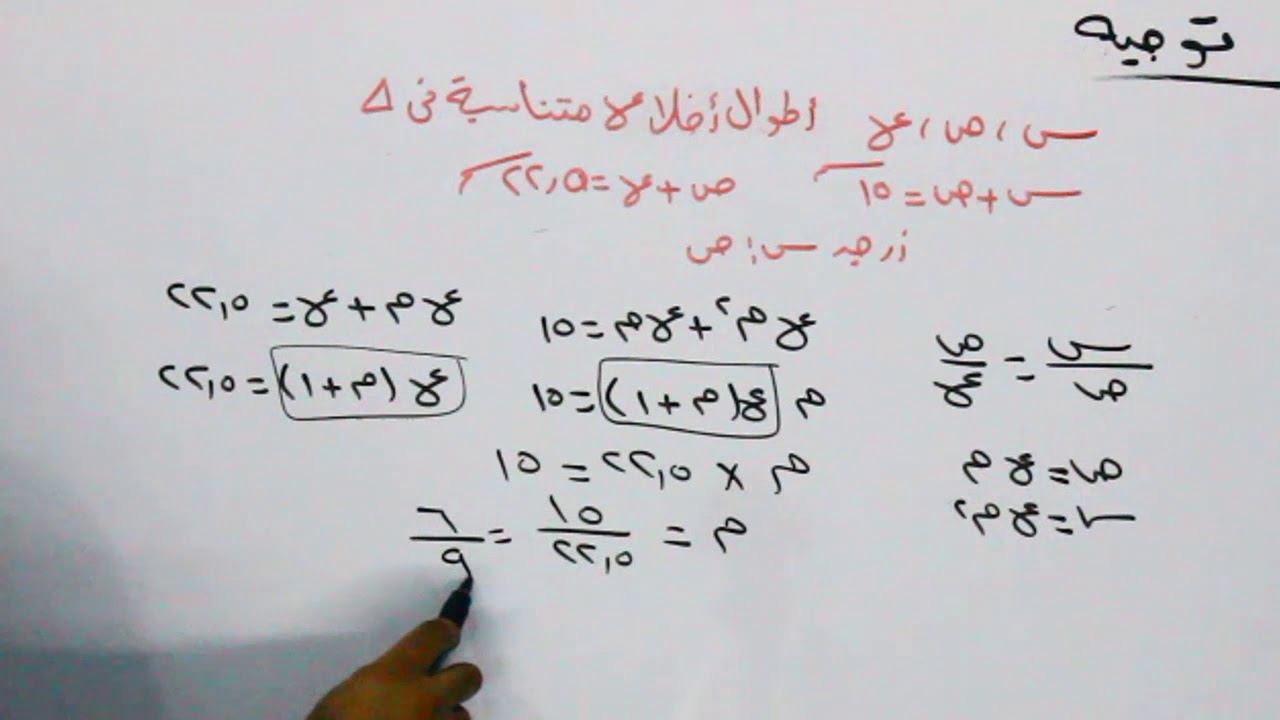 توجيه
س ، ص ، ع أطوال أضلاع متناسبة فى Δ
س + ص = ١٥ ص + ع = ٢٢,٥
أوجد س : ص
س/ص = ص/ع
ص = ع م
س = ع م²
ع م² + ع م = ١٥
م ع (م + ١) = ١٥
م × ٢٢,٥ = ١٥
م = ١٥/٢٢,٥ = ٦/٩
ع م + ع = ٢٢,٥
ع (م + ١) = ٢٢,٥